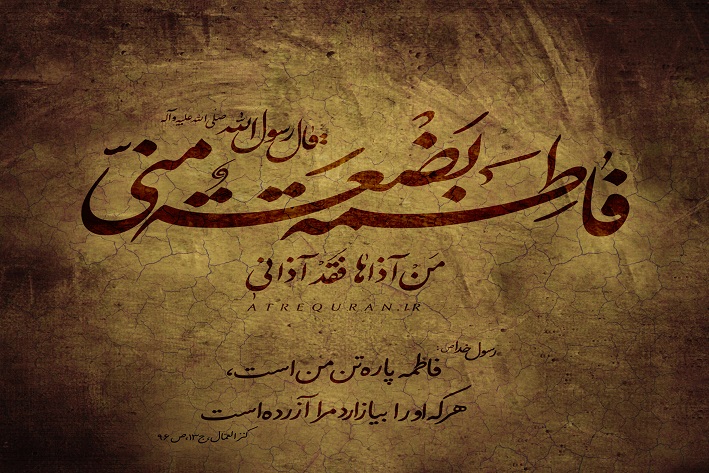 قال رسول الله صلی الله علیه و آله
فاطِمةُ بَضْعَةٌ مِنّی
مَن آذاها فَقَد آذانی
ATREQURAN.IR
رسول خدا(ص):
فاطمه پاره تن من است،
هر که او را بیازارد مرا آزرده است
کنز العمال، ج ۱۳، ص ۹۶